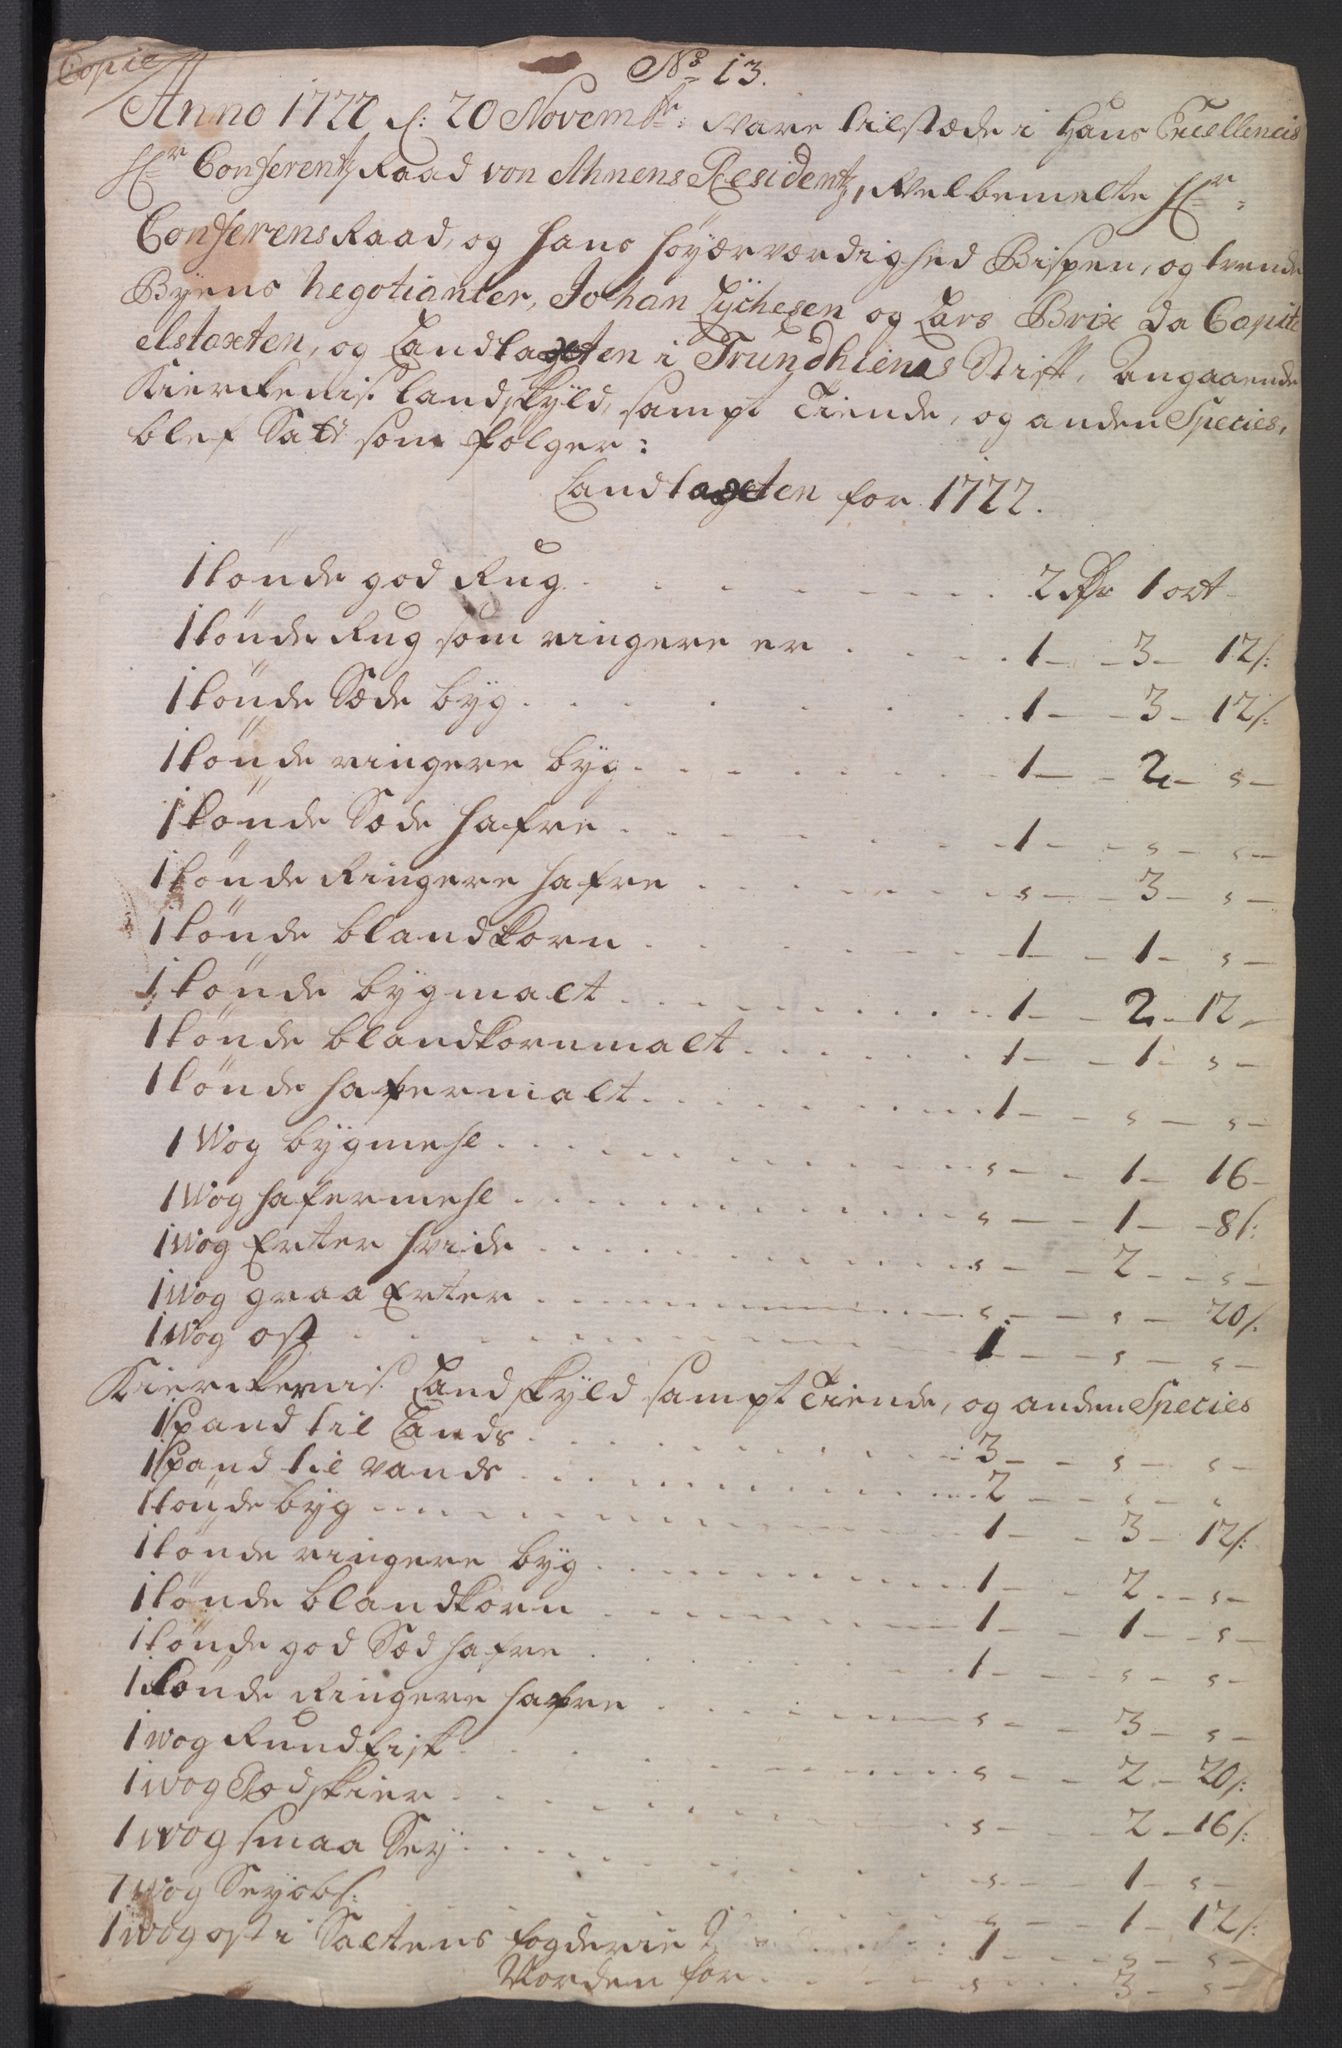 Copie
No 13.
Anno 1722 d: 20 Novembr: Vare tilstæde i Hans Excellencis
Hr Conferentz Raad von Ahnens Residentz, Velbemelte Hr
Conferens Raad, og Hans Höyærværdighed Bispen, og tvende
Byens Negotianter, Johan Lÿchesen og Lars Brix da Capit
elstaxten, og Landtaxten i Trundhiems Stift, angaaende
Kierckenis: Landskÿld, sampt Tiende, og anden Species,
blef Satt som følger:
Landtaxten for 1722.
1 tønde god Rug . . . 2 Rdr 1 ort
1 tønde Rug som ringere er . . . 1 - 3 - 12 s:
1 tønde Sæde byg . . . 1 - 3 - 12 s:
1 tønde ringere byg . . . 1 - 2 - s -
1 tønde Sæde Hafre . . . 1 - s - s -
1 tønde Ringere Hafre . . . s - 3 - s -
1 tønde blandkorn . . . 1 - 1 - s -
1 tønde bygmalt . . . 1 - 2 - 12 -
1 tønde blandkornmalt . . . 1 - 1 - s -
1 tønde Hafermalt . . . 1 - s - s -
1 Wog bygmehl . . . s - 1 - 16 -
1 Wog Hafermehl . . . s - 1 - 8 s:
1 Wog Erter Hvide . . . s - 2 - s -
1 Wog graa Erter . . . s - s - 20 s:
1 Wog ost . . . 1 - s - s -
Kierckernis: Landskÿld sampt Tiende, og anden Species
1 Spand til Lands . . . 3 - s - s -
1 Spand til vands . . . 2 - s - s
1 tønde byg . . . 1 - 3 - 12 s:
1 tønde ringere byg . . . 1 - 2 - s -
1 tønde blandkorn . . . 1 - 1 - s -
1 tønde god Sæd Hafre . . . 1 - s - s -
1 tønde Ringere Hafre . . . s - 3 - s -
1 wog Rundfisk . . . s - 2 - 20 s:
1 wog Rødskier . . . s - 2 - 16 s:
1 wog smaa Seÿ . . . s - 1 - s -
1 wog Seÿobs: . . . s - 1 - 12 s:
1 wog ost i Saltens fogderie . . . 1 - s - s -
Norden for . . . s - 3 - s -